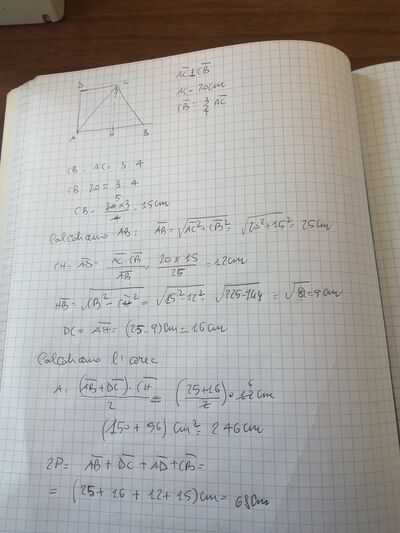 D C
A H B
AC ⊥ CB
AC = 20cm
CB = 3/4 AC
CB : AC = 3 : 4
CB : 20 = 3 : 4
CB = 20×3/4 5 = 15cm
Calcoliamo AB: AB = √AC²+CB² = √20²+15² = 25cm
CH = AD = AC·CB/AB = 20 × 15/25 = 12cm
HB = √CB²-CH² = √15²-12² = √225-144 = √81=9cm
DC = AH = (25-9)cm = 16cm
Calcoliamo l'area
A: (AB+DC)·CH/2 = (25+16/2)·12 6 cm
(150+96) cm² = 246cm
2P = AB + DC + AD + CB =
= (25+16+12+15)cm = 68cm